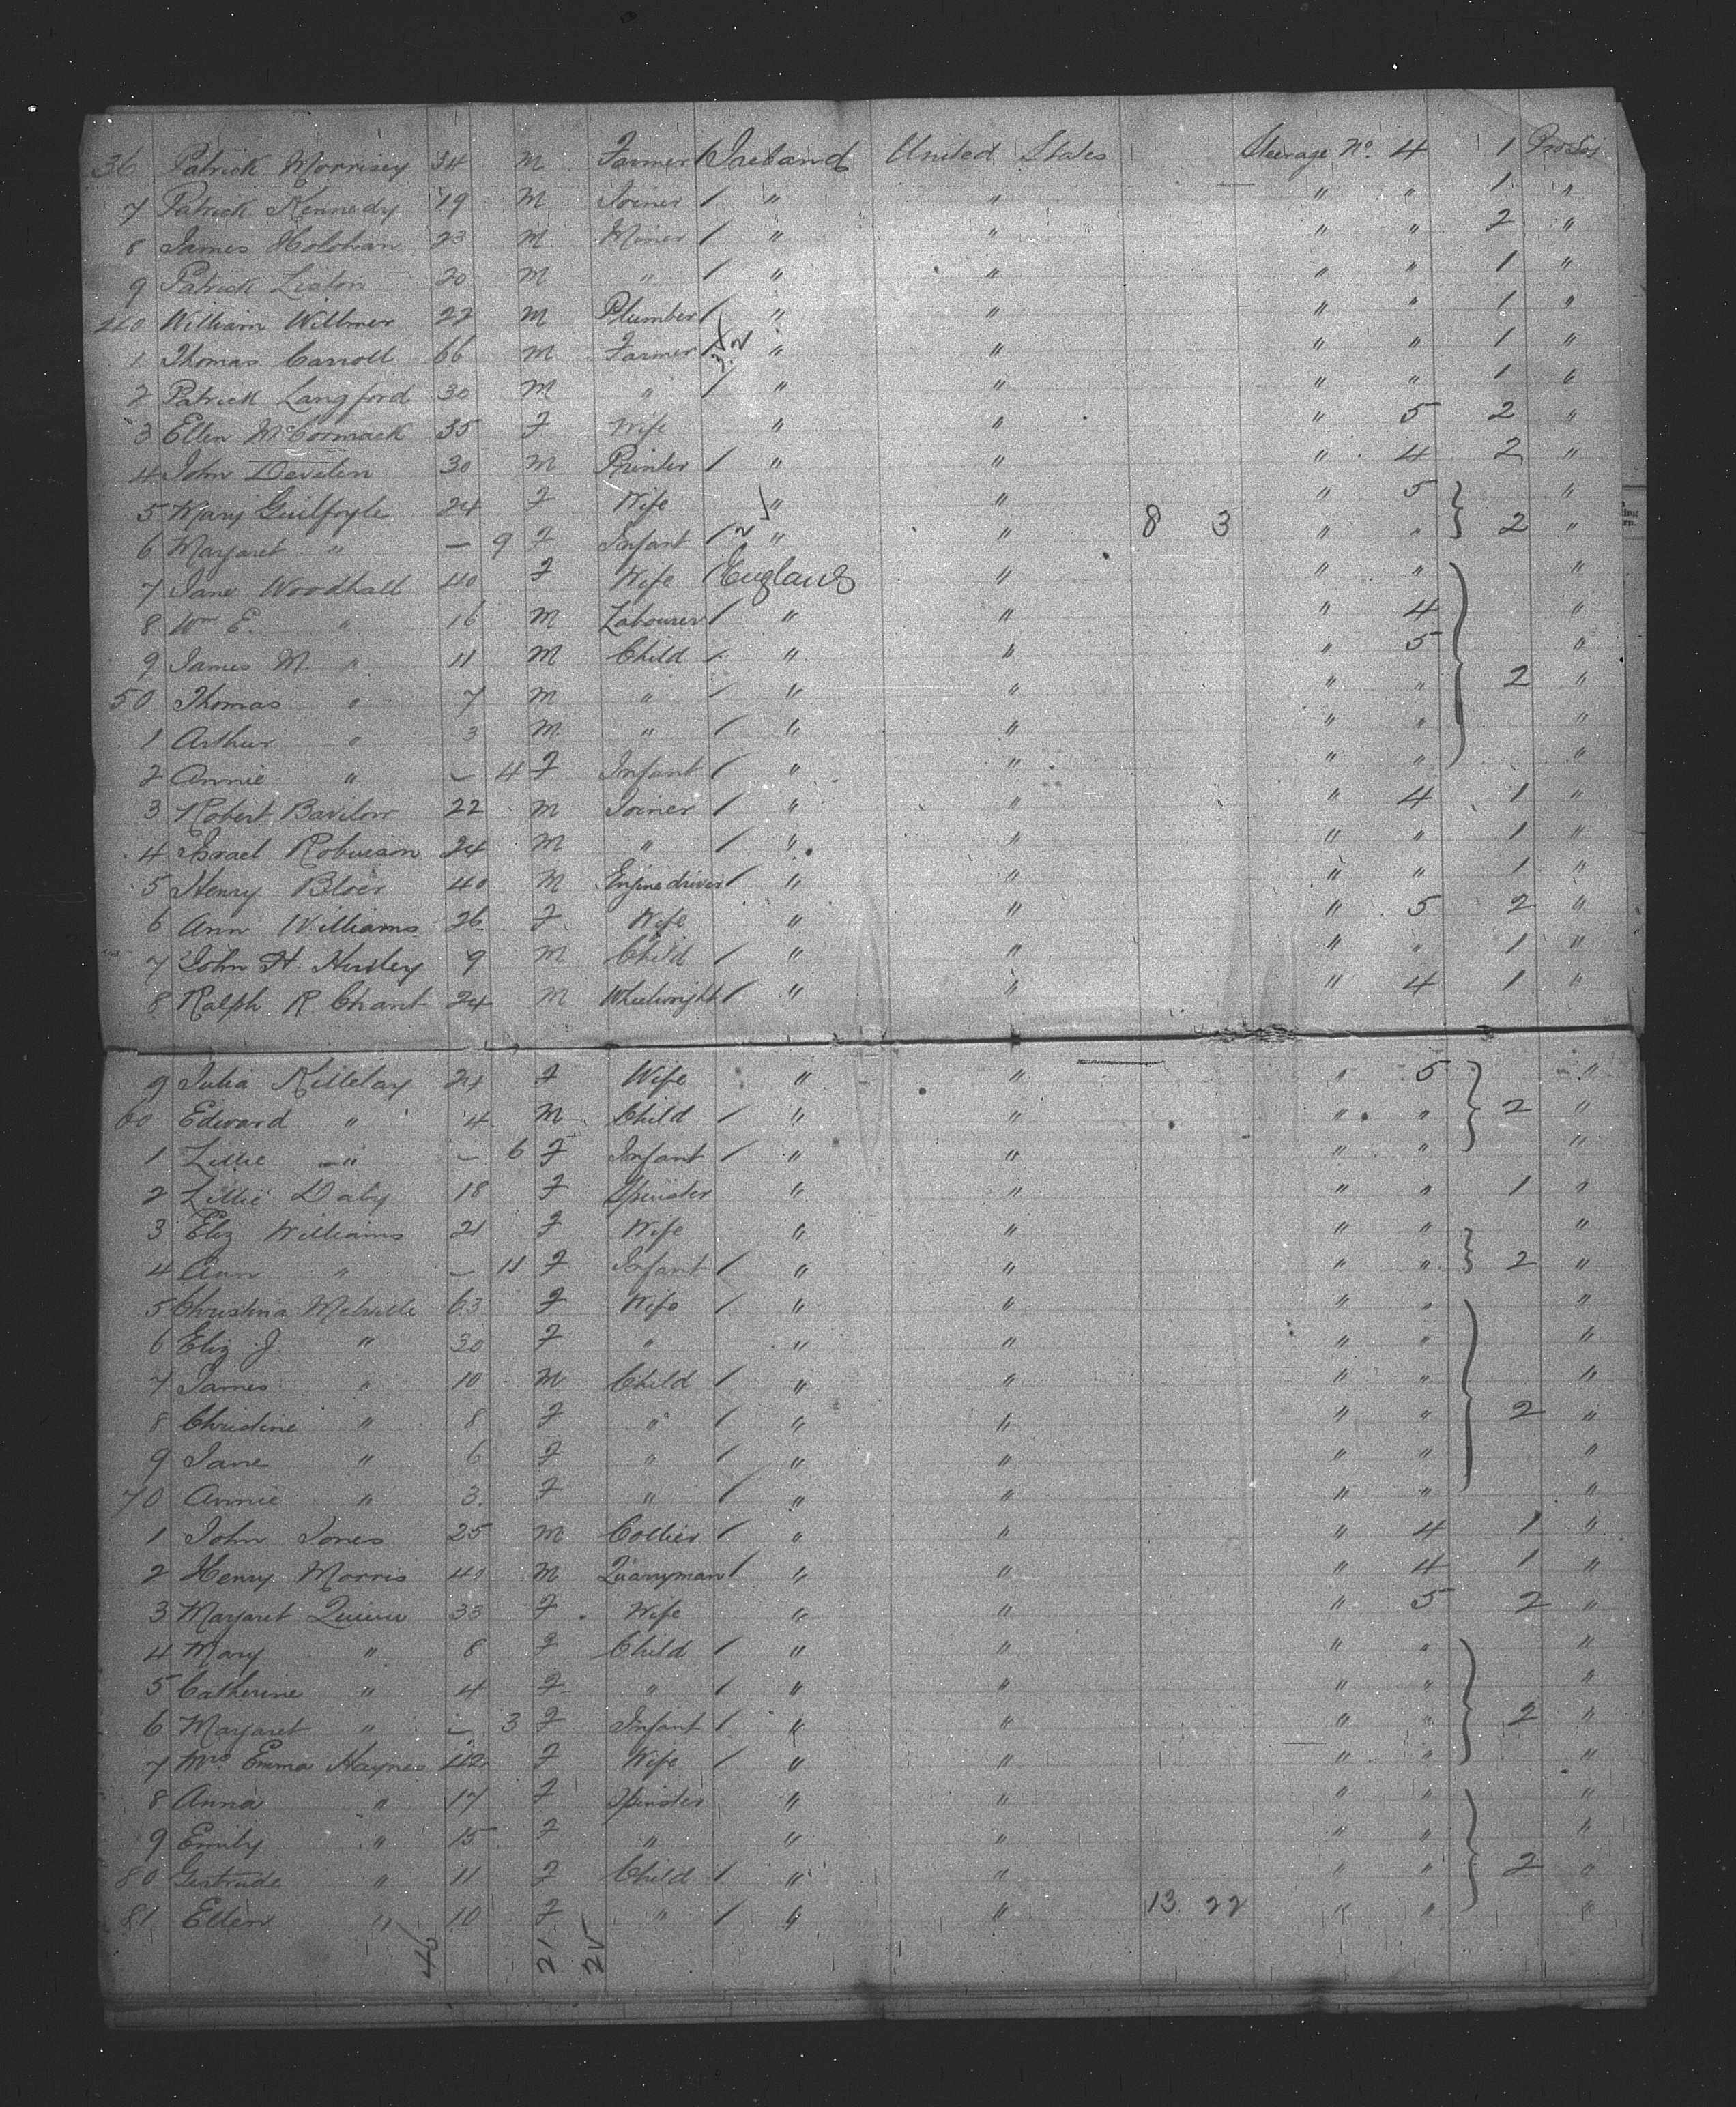 36 Patrick Morrisey 34 M Farmer / Ireland United States Steerage No. 4 1
7 Patrick Kennedy 19 M Joiner / " " " " 1 "
8 James Holohan 23 M Miner / " " " " 2 "
9 Patrick Liston 20 M " / " " " " 1 "
240 William Willmer 22 M Plumber / " " " " 1 "
1 Thomas Carroll 66 M Farmer / " " " " 1 "
2 Patrick Langford 30 M " / " " " " 1 "
3 Ellen McCormack 35 F Wife " " " 5 2 "
4 John Devilin 30 M Printer / " " " 4 2 "
5 Mary Guilfoyle 24 F Wife " " " 5 "
6 Margaret " — 9 F Infant / " " 8 3 " " 2 "
7 Jane Woodhall 40 F Wife / England " " " "
8 Wm E. " 16 M Labourer / " " " 4 "
9 James M. " 11 M Child / " " " 5 "
50 Thomas " 7 M " / " " " " 2 "
1 Arthur " 3 M " / " " " " "
2 Annie " — 4 F Infant / " " " " "
3 Robert 22 M Joiner / " " " 4 1 "
4 Israel Robinson 24 M " / " " " " 1 "
5 Henry 40 M Engine driver / " " " " 1 "
6 Ann Williams 26 F Wife " " " 5 2 "
7 John H. 9 M Child / " " " " 1 "
8 Ralph R Chant 24 M Wheelwright / " " " 4 1 "
9 Julia Killelay 24 F Wife " " " 5 "
60 Edward " 4 M Child / " " " " 2 "
1 Lillie " — 6 F Infant / " " " " "
2 Lillie Daly 18 F Spinster " " " " 1 "
3 Eliz Williams 21 F Wife " " " " "
4 Ann " — 11 F Infant / " " " " 2 "
5 Christina Melville 63 F Wife / " " " " "
6 Eliz J. " 30 F " " " " " "
7 James " 10 M Child / " " " " "
8 Christine " 8 F " / " " " " 2 "
9 Jane " 6 F " / " " " " "
70 Annie " 3 F " / " " " " "
1 John Jones 25 M Collier / " " " 4 1 "
2 Henry Morris 40 M Quarryman / " " " 4 1 "
3 Margaret Quinn 33 F Wife " " " 5 2 "
4 Mary " 8 F Child / " " " " "
5 Catherine " 4 F " / " " " " "
6 Margaret " — 3 F Infant / " " " " 2 "
7 Mrs Emma Haynes 42 F Wife / " " " " "
8 Anna " 17 F Spinster " " " " "
9 Emily " 15 F " " " " " "
80 Gertrude " 11 F Child / " " " " 2 "
81 Ellen " 10 F " / " " 13 22 " " "
46 21 25